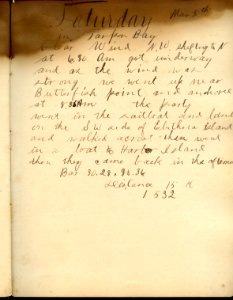 Saturday Mar 5th
in Tarpon Bay
Clear Wind N.W. shifting to N
at 6.30 Am got underway
and as the wind was
strong we went up near
Butterfish point and anchored
at 8 Am the party
went in the sailboat and land
on the S W side of Eluthera Island
and walked across then went
in a boat to Harbor Island
then they came back in the afternoon
Bar 30.28, 30.36
Distance 15 K
1532